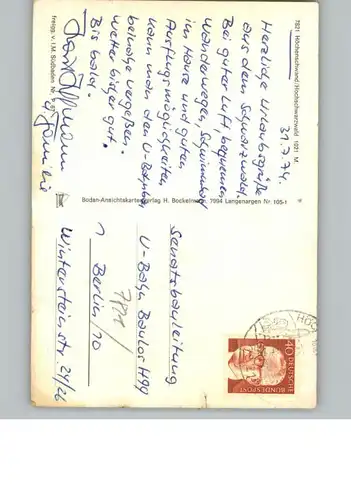 7821 Höchenschwand/Hochschwarzwald 1021 M.
31.7.74.
Herzliche Urlaubsgrüße
aus dem Schwarzwald.
Bei guter Luft, bequemen
Wanderwegen, Schwimmbad
im Hause und guten
Ausflugsmöglichkeiten
kann man den U-Bahnbau
beinahe vergessen.
Wetter bisher gut.
Bis bald.
Familie
freigg. v. I.M. Südbaden Nr.
Boden-Ansichtskartenverlag H. Bockelmann, 7994 Langenargen Nr 105-1
Senatsbauleitung
U-Bahn Baulos H99
1 Berlin/20
Wintersteinstr. 24/26
40
DEUTSCHE
BUNDESPOST
HÖCH